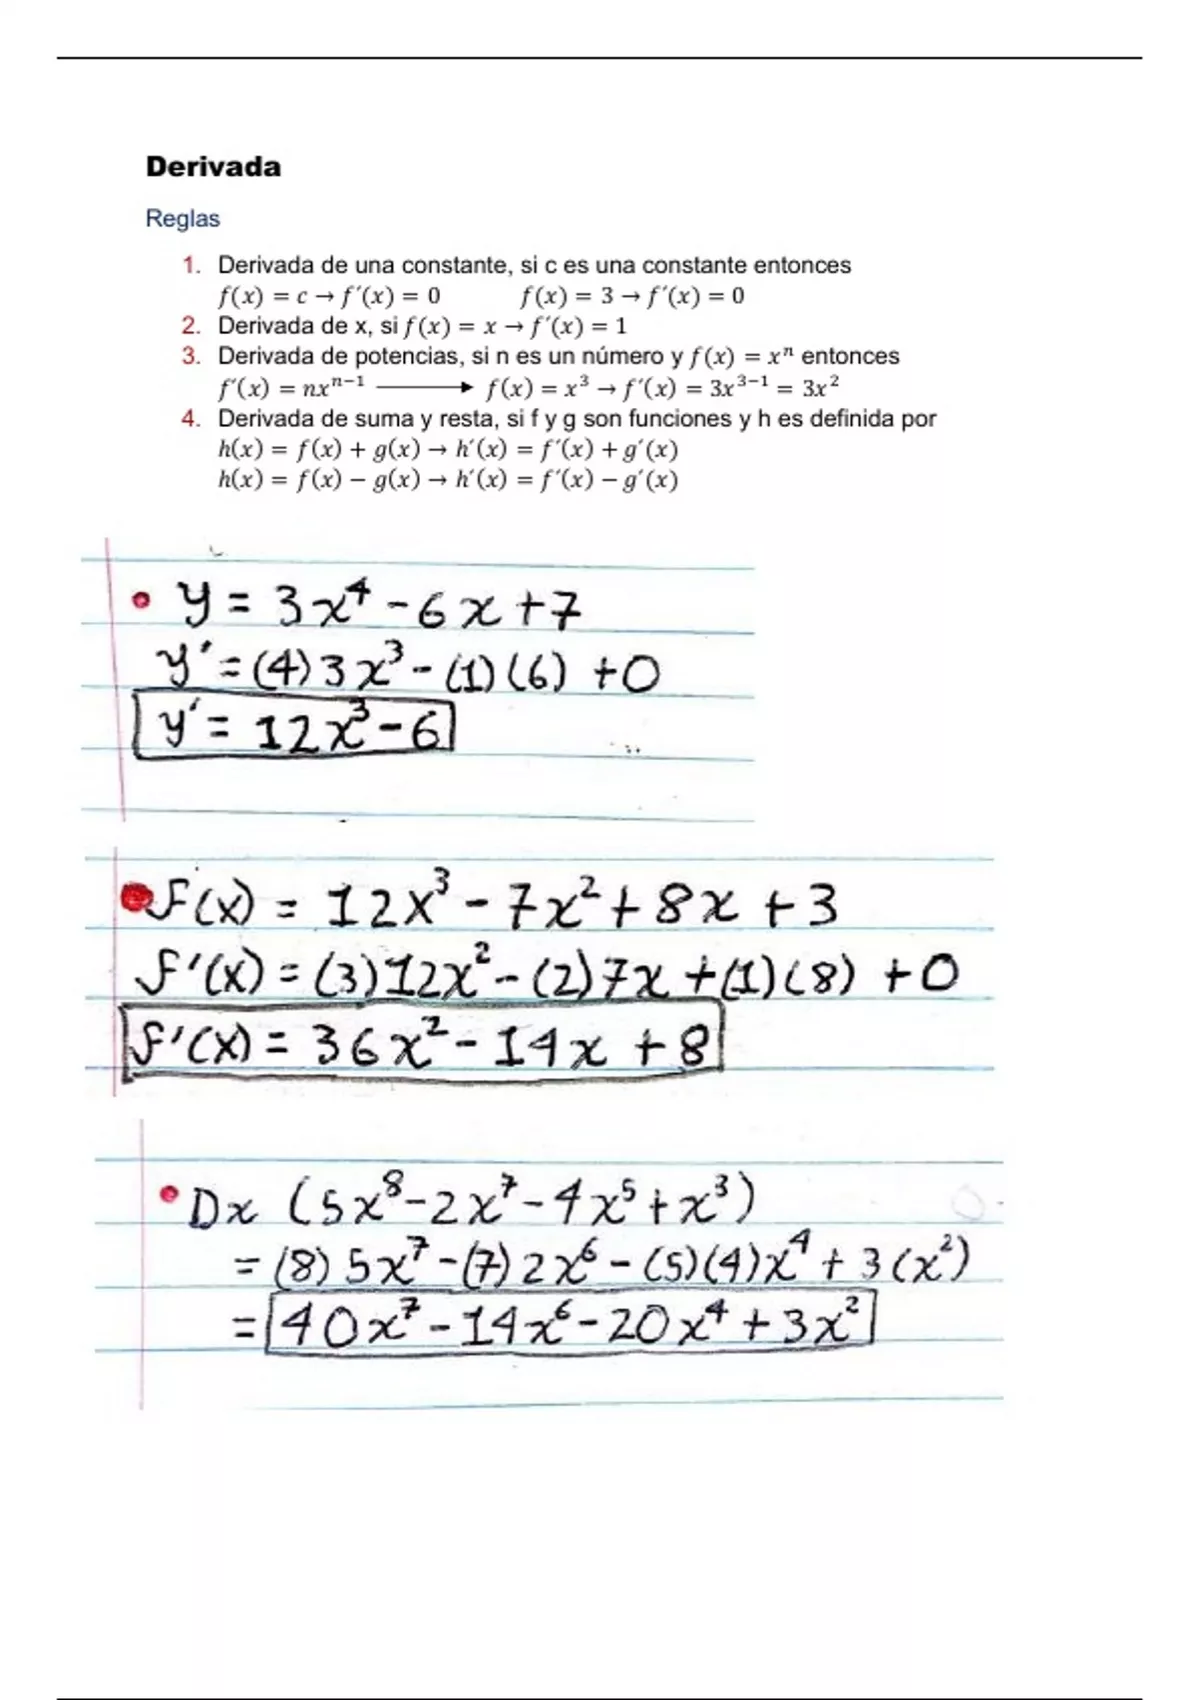 Derivada
Reglas
1. Derivada de una constante, si c es una constante entonces
f(x) = c → f´(x) = 0 f(x) = 3 → f´(x) = 0
2. Derivada de x, si f(x) = x → f´(x) = 1
3. Derivada de potencias, si n es un número y f(x) = xⁿ entonces
f´(x) = nxⁿ⁻¹ ⟶ f(x) = x³ → f´(x) = 3x³⁻¹ = 3x²
4. Derivada de suma y resta, si f y g son funciones y h es definida por
h(x) = f(x) + g(x) → h´(x) = f´(x) + g´(x)
h(x) = f(x) − g(x) → h´(x) = f´(x) − g´(x)
• y = 3x⁴ - 6x + 7
y' = (4)3x³ - (1)(6) + 0
y' = 12x³ - 6
• f(x) = 12x³ - 7x² + 8x + 3
f'(x) = (3)12x² - (2)7x + (1)(8) + 0
f'(x) = 36x² - 14x + 8
• Dx (5x⁸ - 2x⁷ - 4x⁵ + x³)
= (8)5x⁷ - (7)2x⁶ - (5)(4)x⁴ + 3(x²)
= 40x⁷ - 14x⁶ - 20x⁴ + 3x²